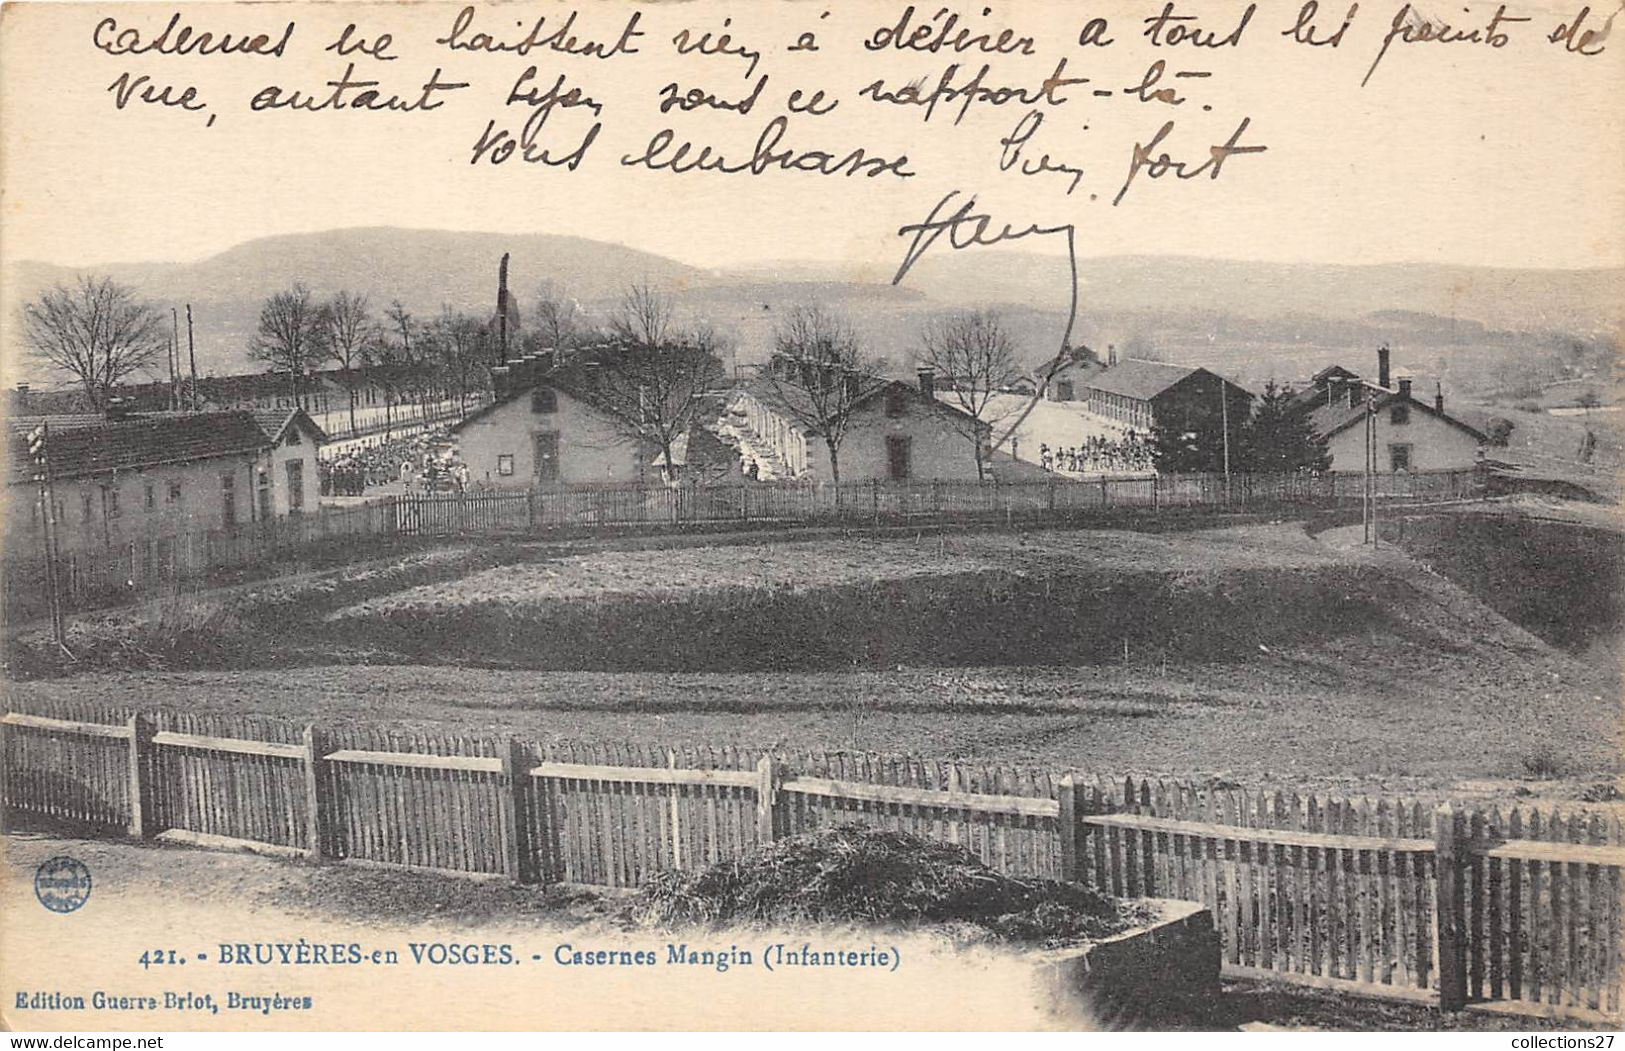 casernes ne laissent rien à désirer a tous les points de
vue, autant Lyon sous ce rapport-là.
Vous embrasse bien fort
Henry
421. - BRUYÈRES-en VOSGES. - Casernes Mangin (Infanterie)
Edition Guerre-Briot, Bruyères
collections27